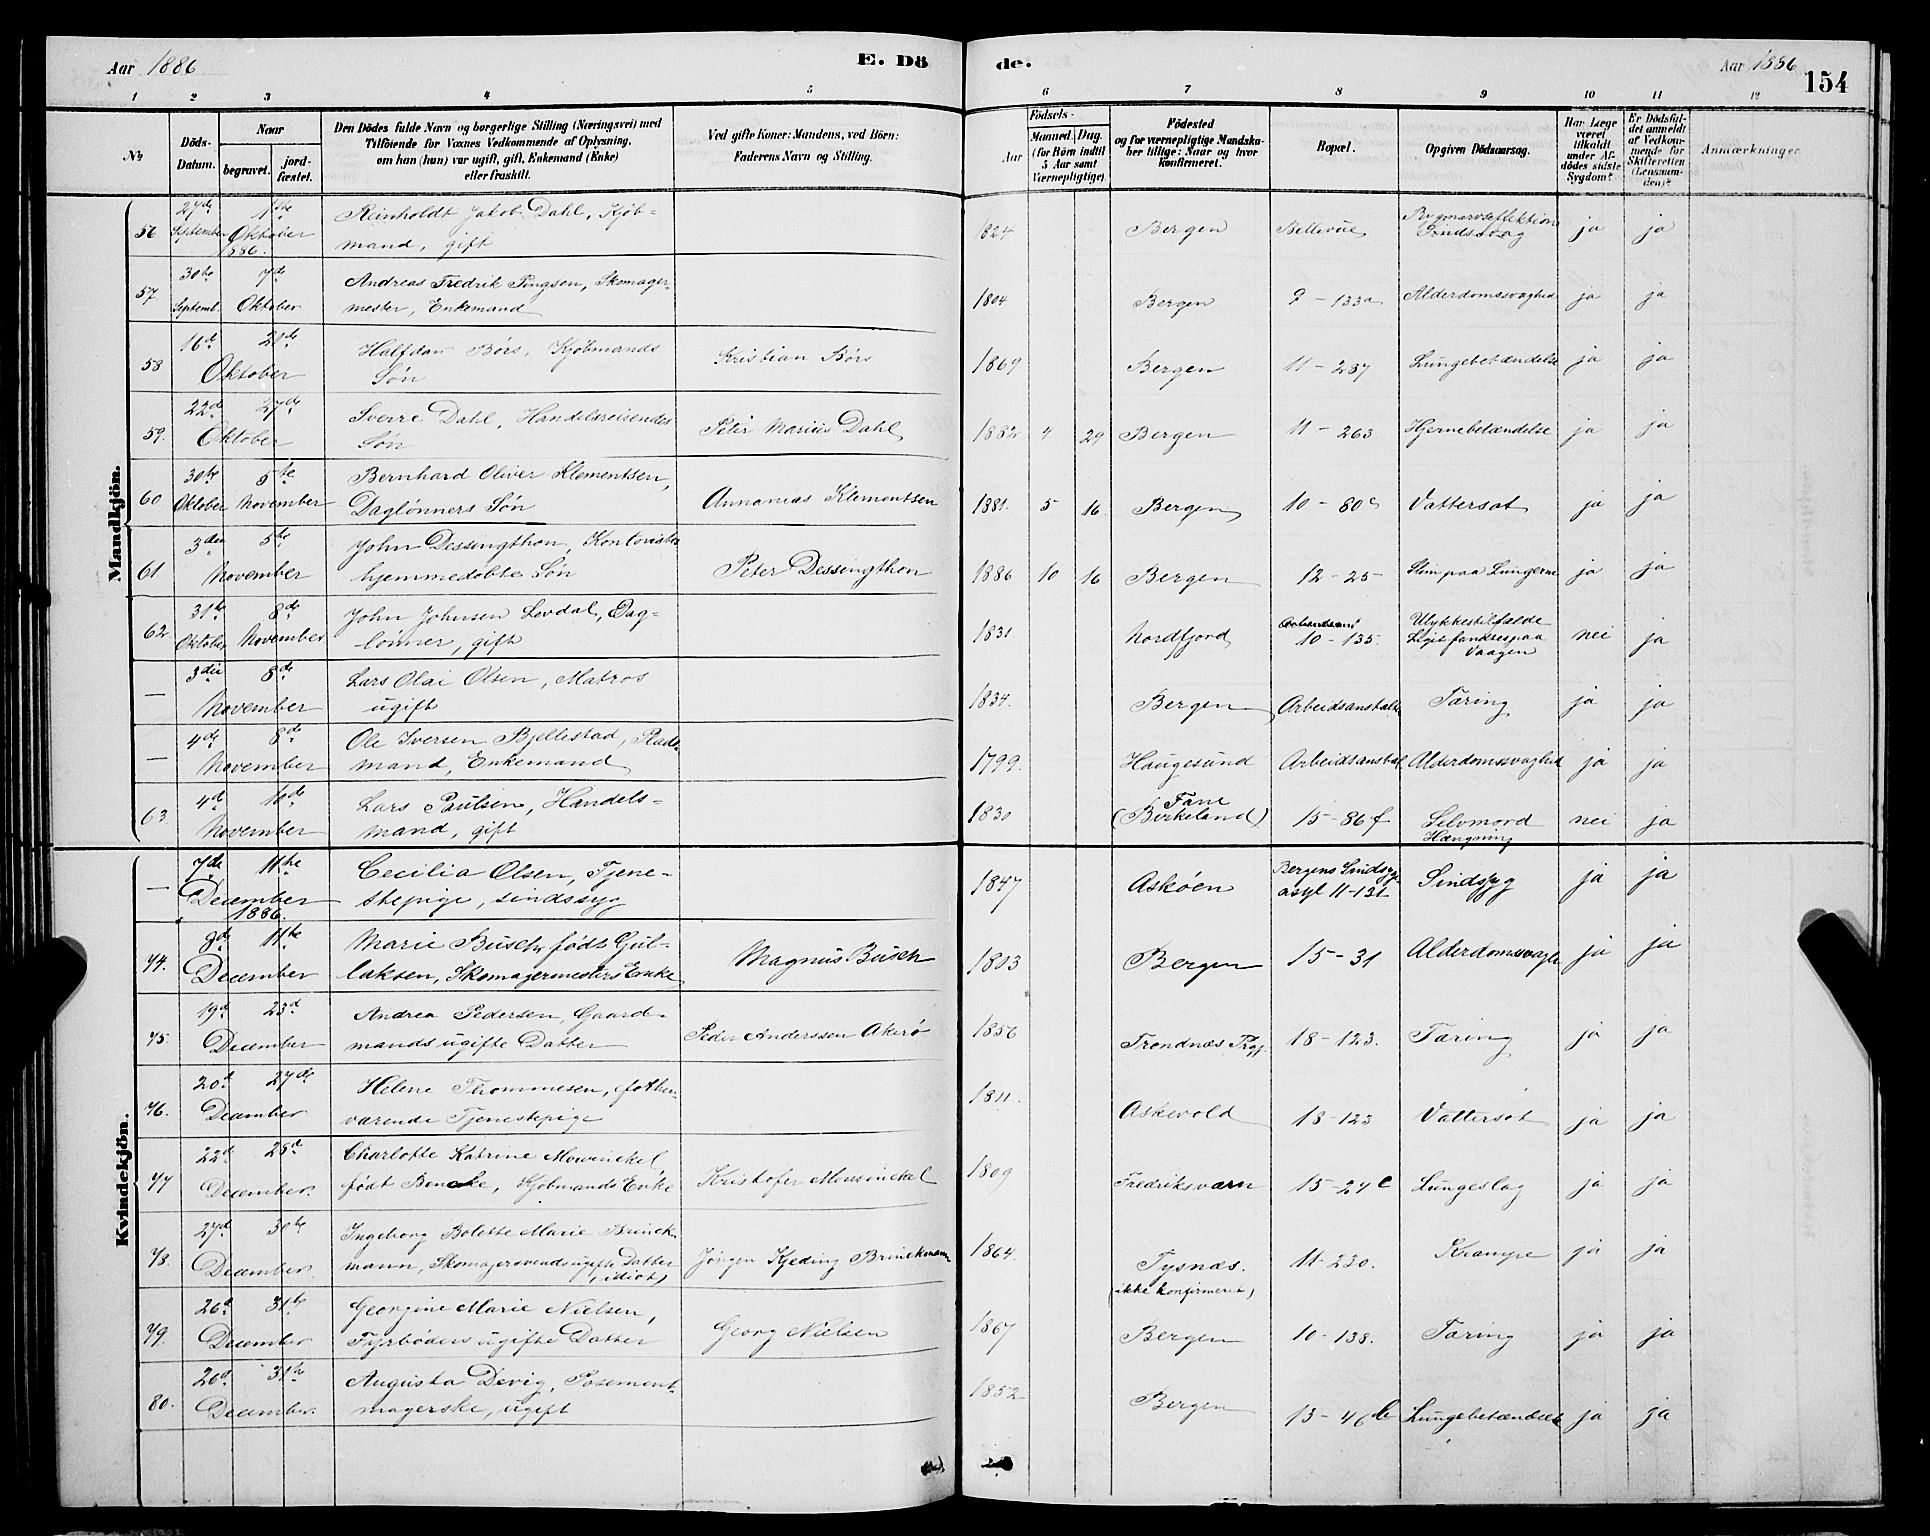 Aar 1886 E. Dö
de. Aar 1886 154
1 2 3 4 5
6 7 8 9 10 11 12
№ Döds-Datum. Naar begravet. jordfæstet. Den Dödes fulde Navn og borgerlige Stilling (Næringsvei) med Tilföiende for Voxnes Vedkommende af Oplysning, om han (hun) var ugift, gift, Enkemand (Enke) eller fraskilt. Ved gifte Koner: Mandens, ved Börn: Faderens Navn og Stilling.
Födsels- Aar Maaned. Dag. (for Börn indtil 5 Aar samt Værnepligtige). Födested og for værnepligtige Mandskaber tillige: Naar og hvor konfirmeret. Bopæl. Opgiven Dödsaarsag. Har Læge været tilkaldt under Afdödes sidste Sygdom? Er Dödsfaldet anmeldt af Vedkommende for Skifteretten (Lensmanden)? Anmærkninger.
Mandkjön.
56 27de September 1ste Oktober 1886. Reinholdt Jakob Dahl, Kjöbmand, gift 1824 Bergen Bellevue Sindssvag ja ja
57 30te Septemb. 7de Oktober Andreas Fredrik Pingsen, Skomagermester, Enkemand 1804 Bergen 9-133a Alderdomssvaghed ja ja
58 16de 21de Oktober Halfdan Börs, Kjöbmands Sön Kristian Börs 1869 Bergen 11-287 Lungebetændelse ja ja
59. 22de 27de Oktober Sverre Dahl, Handelsreisendes Sön Peter Marius Dahl 1882 4 29 Bergen 11-263 Hjernebetændelse ja ja
60 30te Oktober 5te November Bernhard Oliver Klementsen, Daglönners Sön Annanias Klementsen 1881. 5 16 Bergen 10-80c Vattersot ja ja
61 3die 5te November John Dessingthon, Kontorists hjemmedöbte Sön Peter Dessingthon 1886 10 16 Bergen 12-25 Slim paa Lungerne ja ja
62 31te Oktober 8de November John Johnsen Levdal, Daglönner, gift 1831 Nordfjord 10-135. Ulykkestilfælde Liget fandtes paa Vaagen nei ja
— 3die 8de November Lars Olai Olsen, Matros ugift 1834. Bergen Arbeidsanstalt Tæring ja ja
— 4de 8de November Ole Iversen Bjellestad, Enkemand 1799. Haugesund Arbeidsanstalt Alderdomssvaghed ja ja
63 4de 10de November Lars Paulsen, Handelsmand, gift 1830 Fane (Birkeland) 15-86f Selvmord Hængning nei ja
Kvindekjön.
— 7de 11te December 1886. Cecilia Olsen, Tjenestepige, sindssyg 1847 Asköen Bergens Sindsyge asyl 11-131 Sindssyg ja ja
74. 8de 11te December Marie Busch, födt Gullaksen, Skomagermesters Enke Magnus Busch 1803 Bergen 15-31 Alderdomssvaghe ja ja
75. 19de 23d December Andrea Pedersen, Gaardmands ugifte Datter Peder Anderssen Akerö 1856 Trondnæs Prgj. 18-123. Tæring ja ja
76. 20d 27de December Helene Thommesen, forhenværende Tjenestepige 1811. Askevold 18-123 Vattersot ja ja
77 22de 28d December. Charlotte Katrine Mowinckel, födt Boncke, Kjöbmands Enke Kristofer Mowinckel 1809 Fredriksværn 15-24c Lungeslag ja ja
78. 27d 30te December. Ingeborg Bolette Marie Brinckmann, Skomagersvends ugifte Datter (idiot) Jörgen Kjeding Brinckmann 1864. Tysnæs. (ikke konfirmeret) 11-230. Krampe ja ja
79. 26d 31te December Georgine Marie Nielsen, Fyrböders ugifte Datter Georg Nielsen 1867 Bergen 10-138. Tæring ja ja
80. 26d 31te December. Augusta Devig, Posementmagerske, ugift 1852 Bergen 13-46b Lungebetændelse ja ja